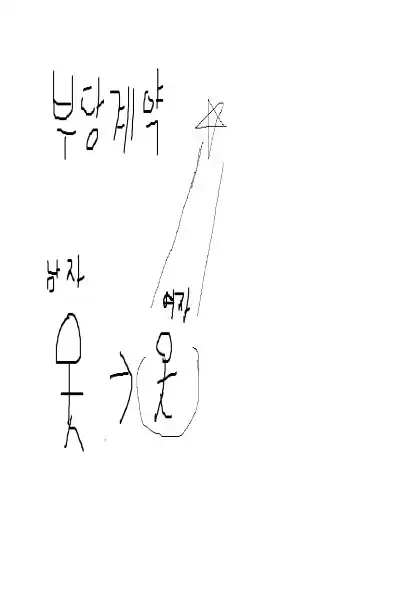 부당계약
남자
여자